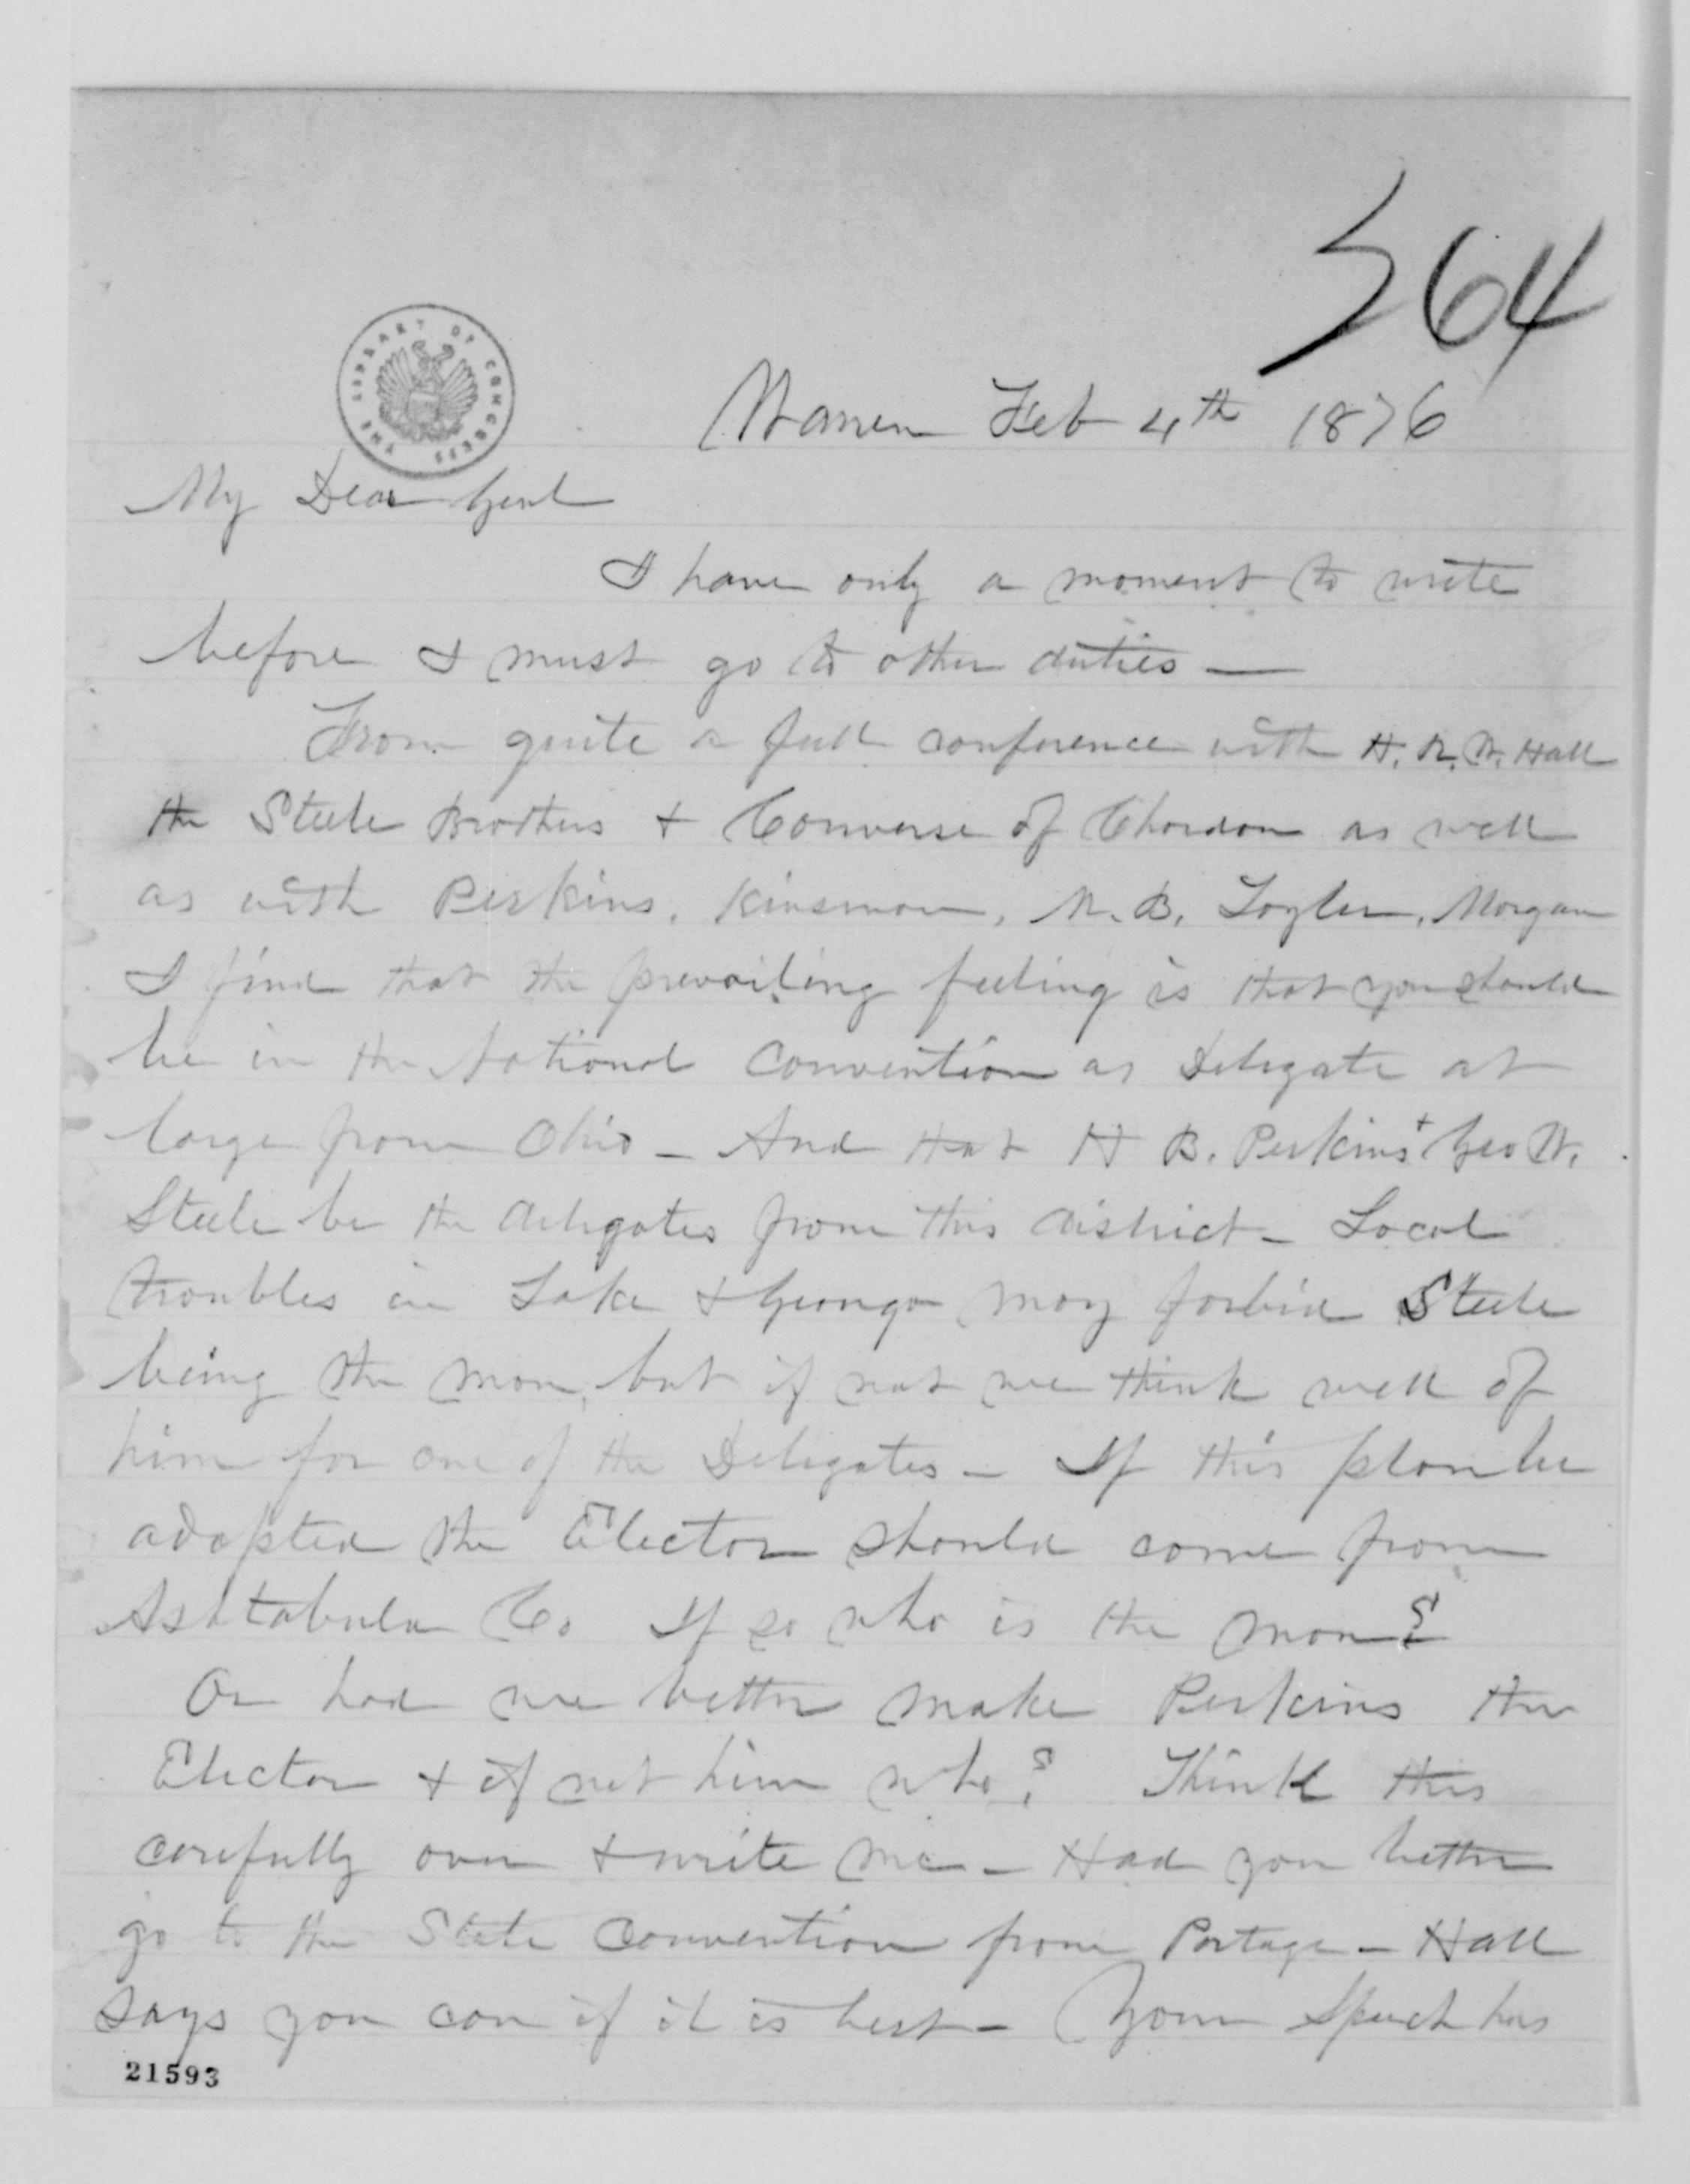 364
THE LIBRARY OF CONGRESS
Warren Feb 4th 1876
My Dear Genl
I have only a moment to write
before I must go to other duties —
From quite a full conference with H. R. W. Hall
the Steele Brothers & Converse of Chardon as well
as with Perkins, Kinsman, M. B. Taylor, Morgan
I find that the prevailing feeling is that you should
be in the National Convention as Delegate at
large from Ohio – And that H B. Perkins & Geo W.
Steele be the delegates from this district – Local
troubles in Lake & Geauga may forbid Steele
being the man, but if not we think well of
him for one of the Delegates – If this plan be
adopted the Elector should come from
Ashtabula Co If so who is the man?
Or had we better make Perkins the
Elector & if not him who? Think this
carefully over & write me – Had you better
go to the State Convention from Portage – Hall
says you can if it is best – Your Speech has
21593